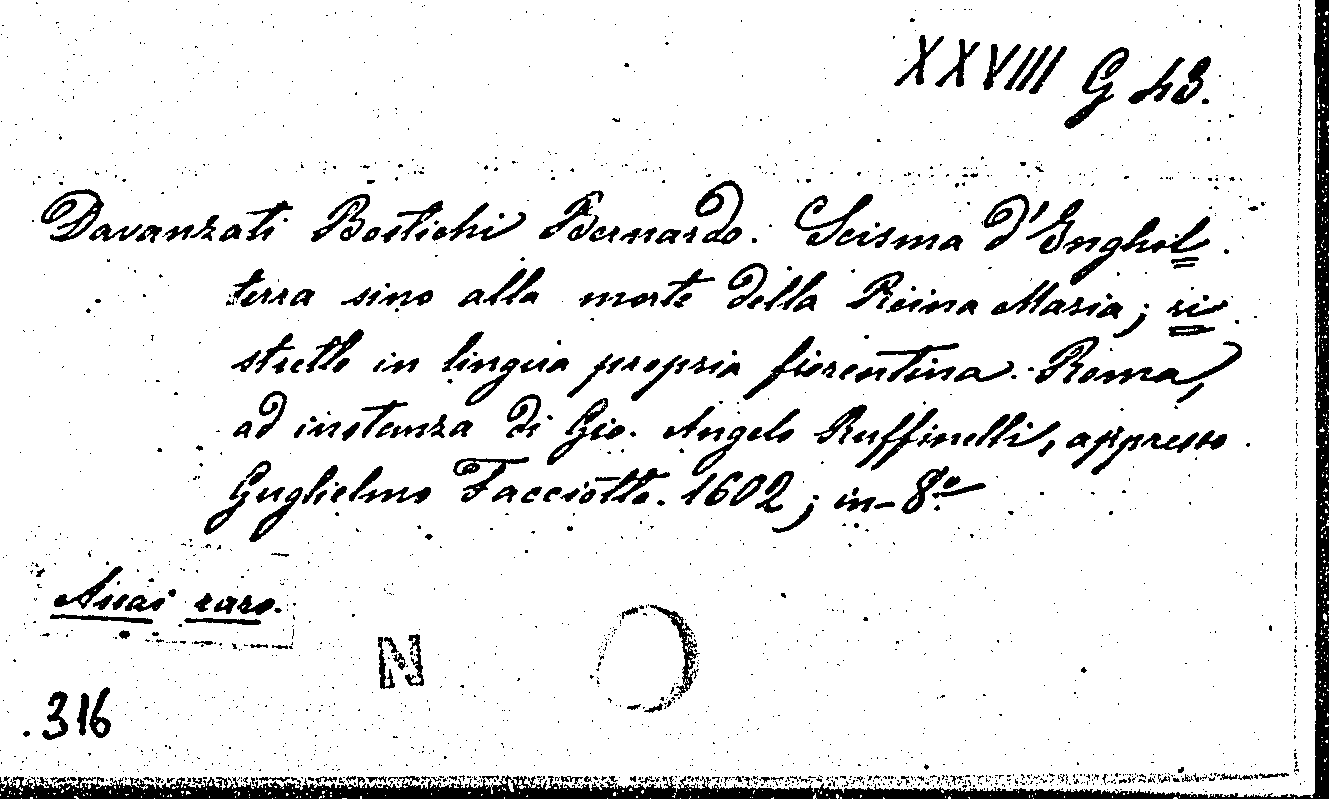 XXVIII G 43.
Davanzati Bostichi Bernardo. Scisma d'Inghil=
terra sino alla morte della Reina Maria; ri=
stretto in lingua propria fiorentina. Roma,
ad instanza di Gio. Angelo Ruffinelli, appresso
Guglielmo Facciotto. 1602; in-8.º
Assai raro.
N
.316